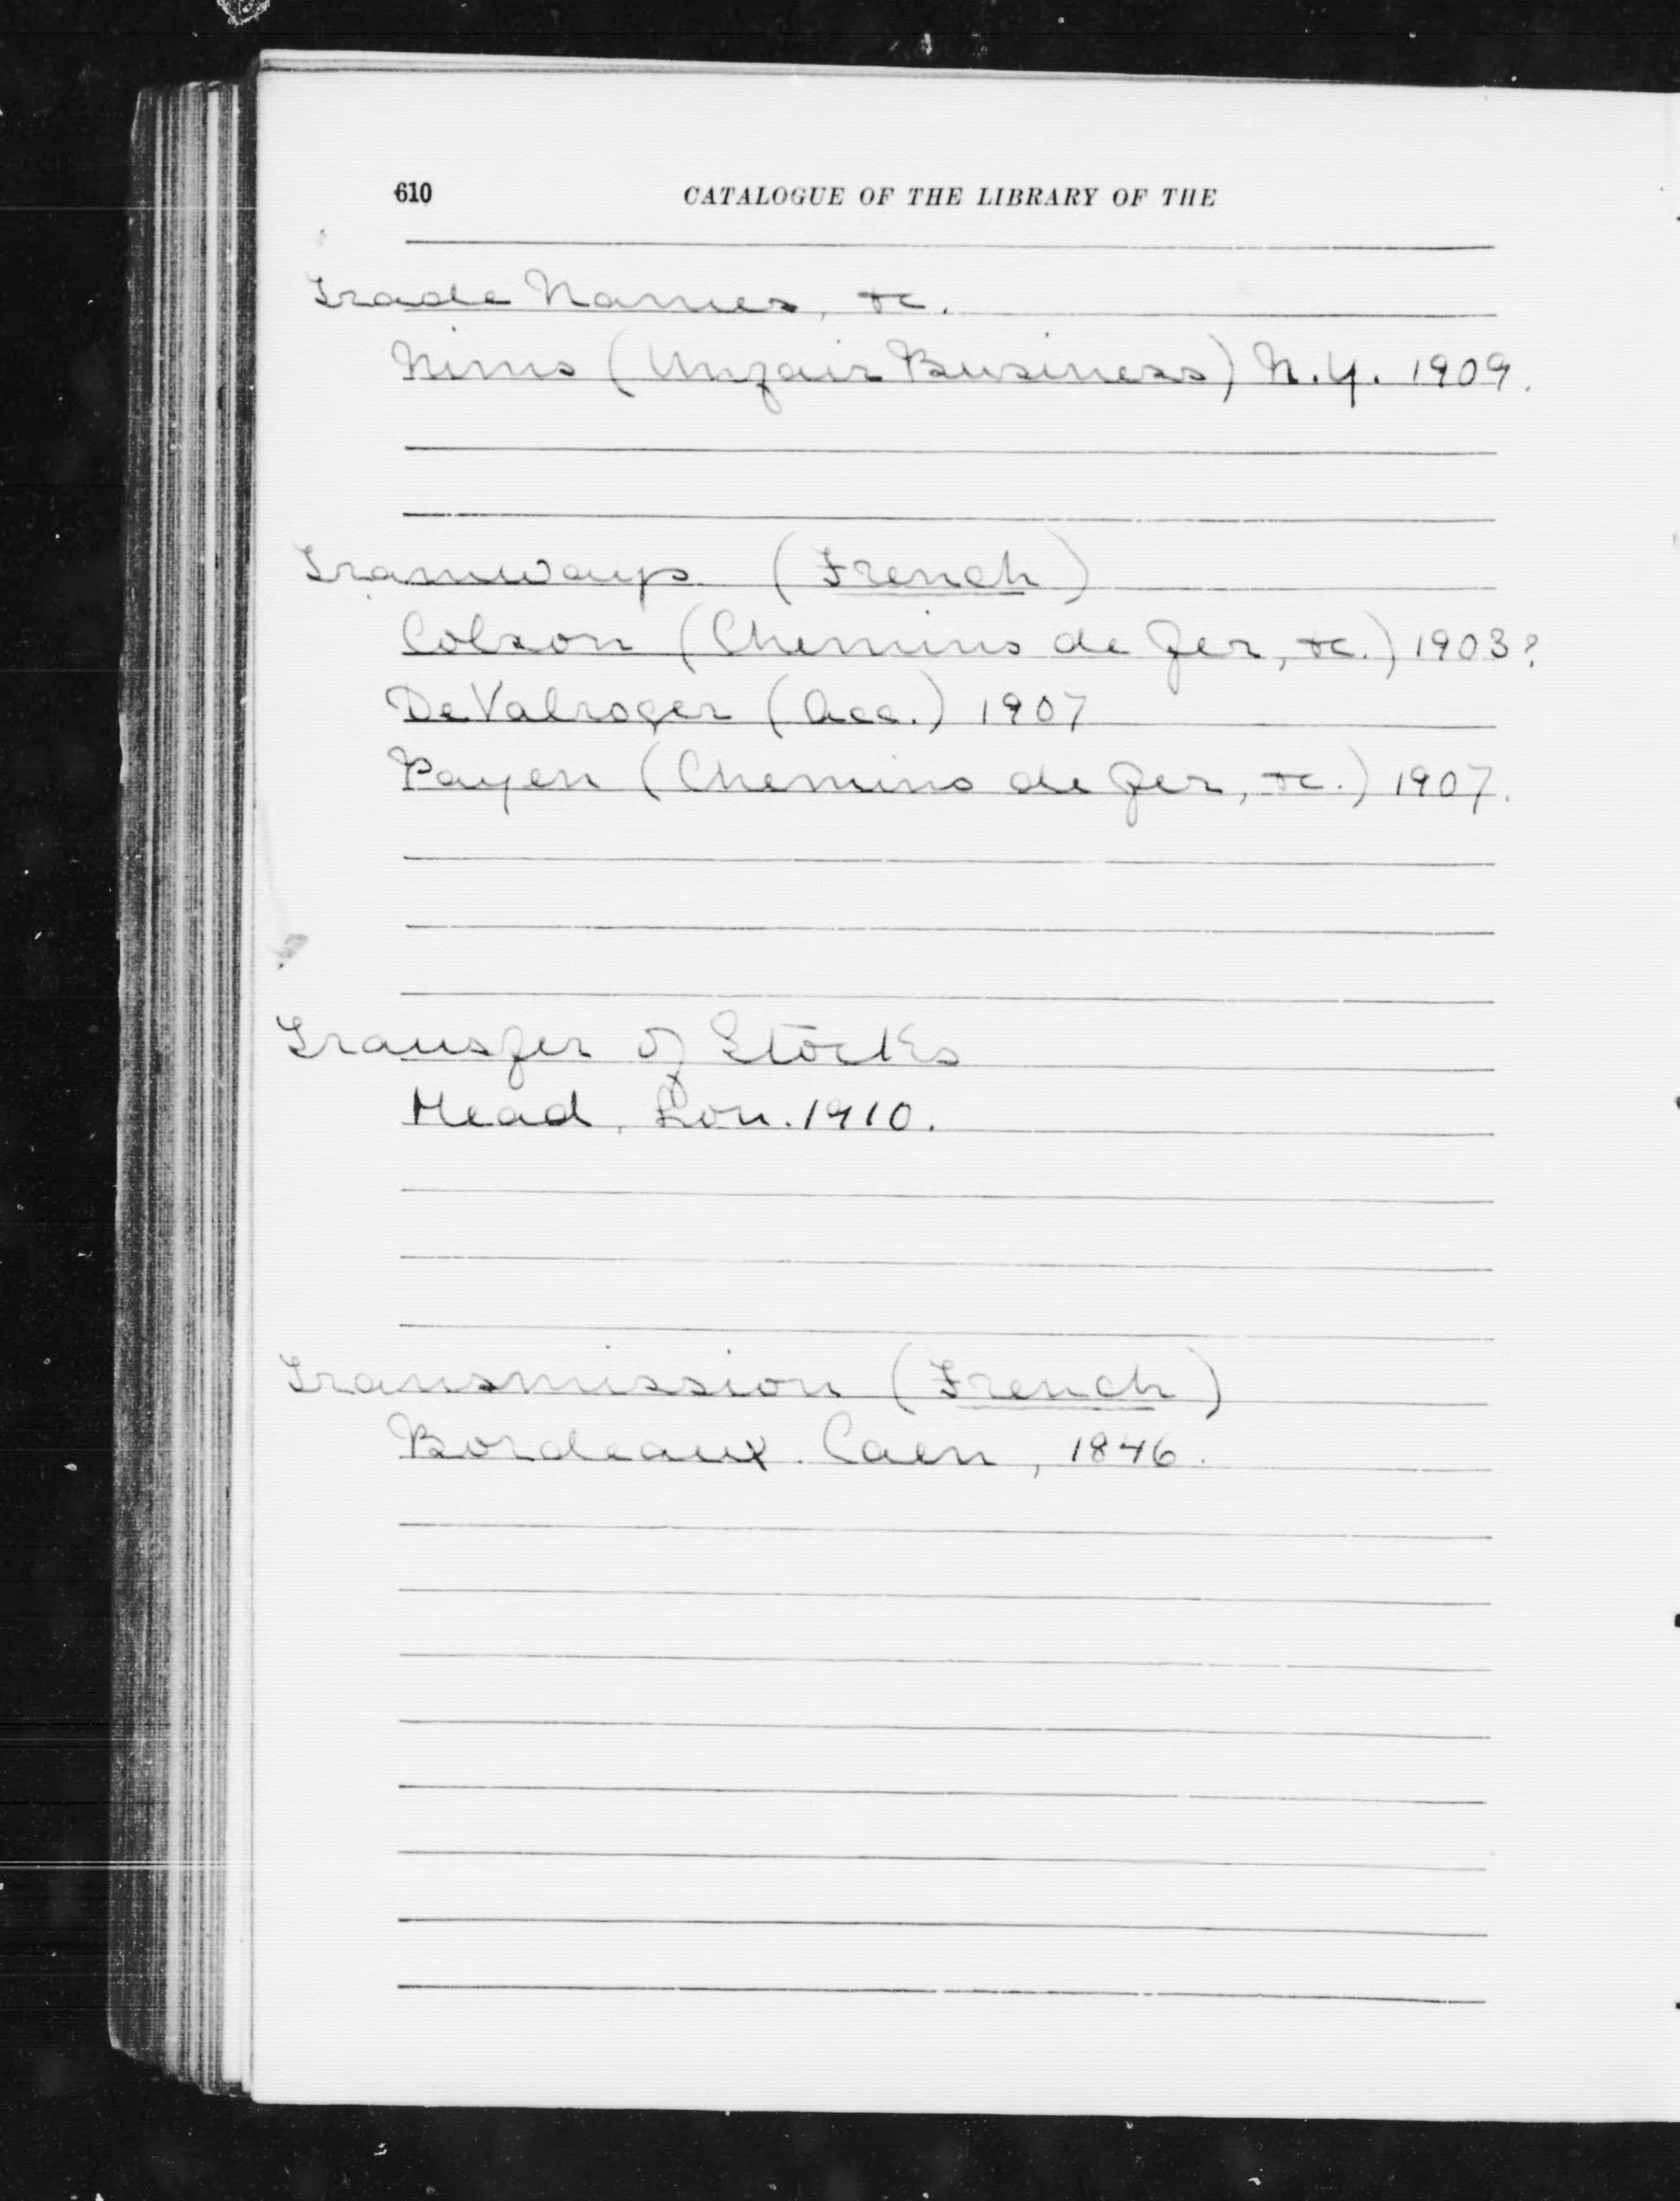 610 CATALOGUE OF THE LIBRARY OF THE
Trade Names, &c.
Nims (Unfair Business) N.Y. 1909.
Tramways (French)
Colson (Chemins de fer, &c.) 1903?
De Valroger (Acc.) 1907
Payen (Chemins de fer, &c.) 1907.
Transfer of Stocks
Mead, Lon. 1910.
Transmission (French)
Bordeaux. Caen, 1846.